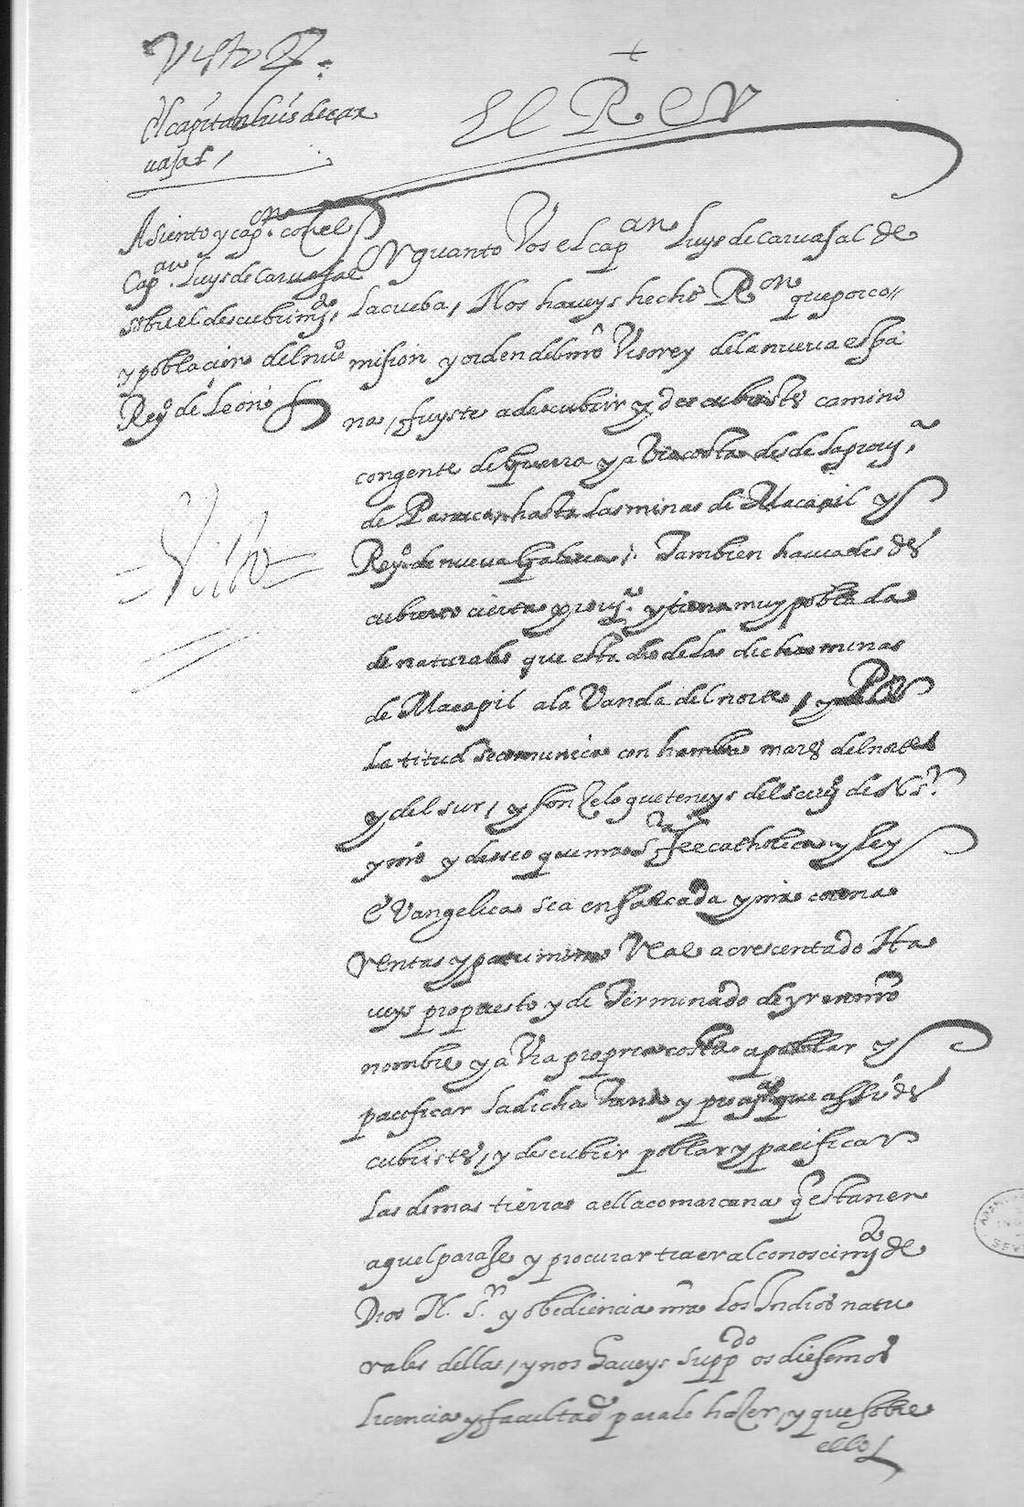 Visto
+
El Rey
El capitan luis de car
uajal,
Asiento y cap.on con el
Cap.an Luys de Caruajal
sobre el descubrim.o
y poblacion del nuevo
Rey.o de Leon
Visto
Por quanto Vos el cap.an Luys de Caruajal de
la cueba, Nos haueys hecho R.on que por co=
mision y orden del nro Visorey de la nueva espa
na, fuyste a descubrir y descubristes camino
con gente de guerra y a vra costa desde la prou.a
de Panuco hasta las minas de Macapil y
Rey.o de nueva Galicia, Tambien hauiades des
cubierto cierta prou.a y tierra muy poblada
de naturales que esta desde las dichas minas
de Macapil a la Vanda del norte, y Por
latitud se comunica con hambas mares del norte
y del sur, y con zelo que teneys del seru.o de N s.r
y mio y deseo que nra s.ta fee catholica y ley
Evangelica sea ensalcada y mia corona
Rentas y patrimonio Real acrescentado Ha
ueys propuesto y determinado de yr en nro
nombre y a Vra propria costa a poblar y
pacificar la dicha tierra y prou.a que assi des
cubristes, y descubrir poblar y pacificar
las demas tierras a ella comarcanas q estan en
aquel paraje y procurar traer al conoscim.o de
Dios N. S.r y obediencia nra los Indios natu
rales dellas, y nos haueys supp.do os diesemos
licencia y facultad para lo hazer, y que sobre
ello